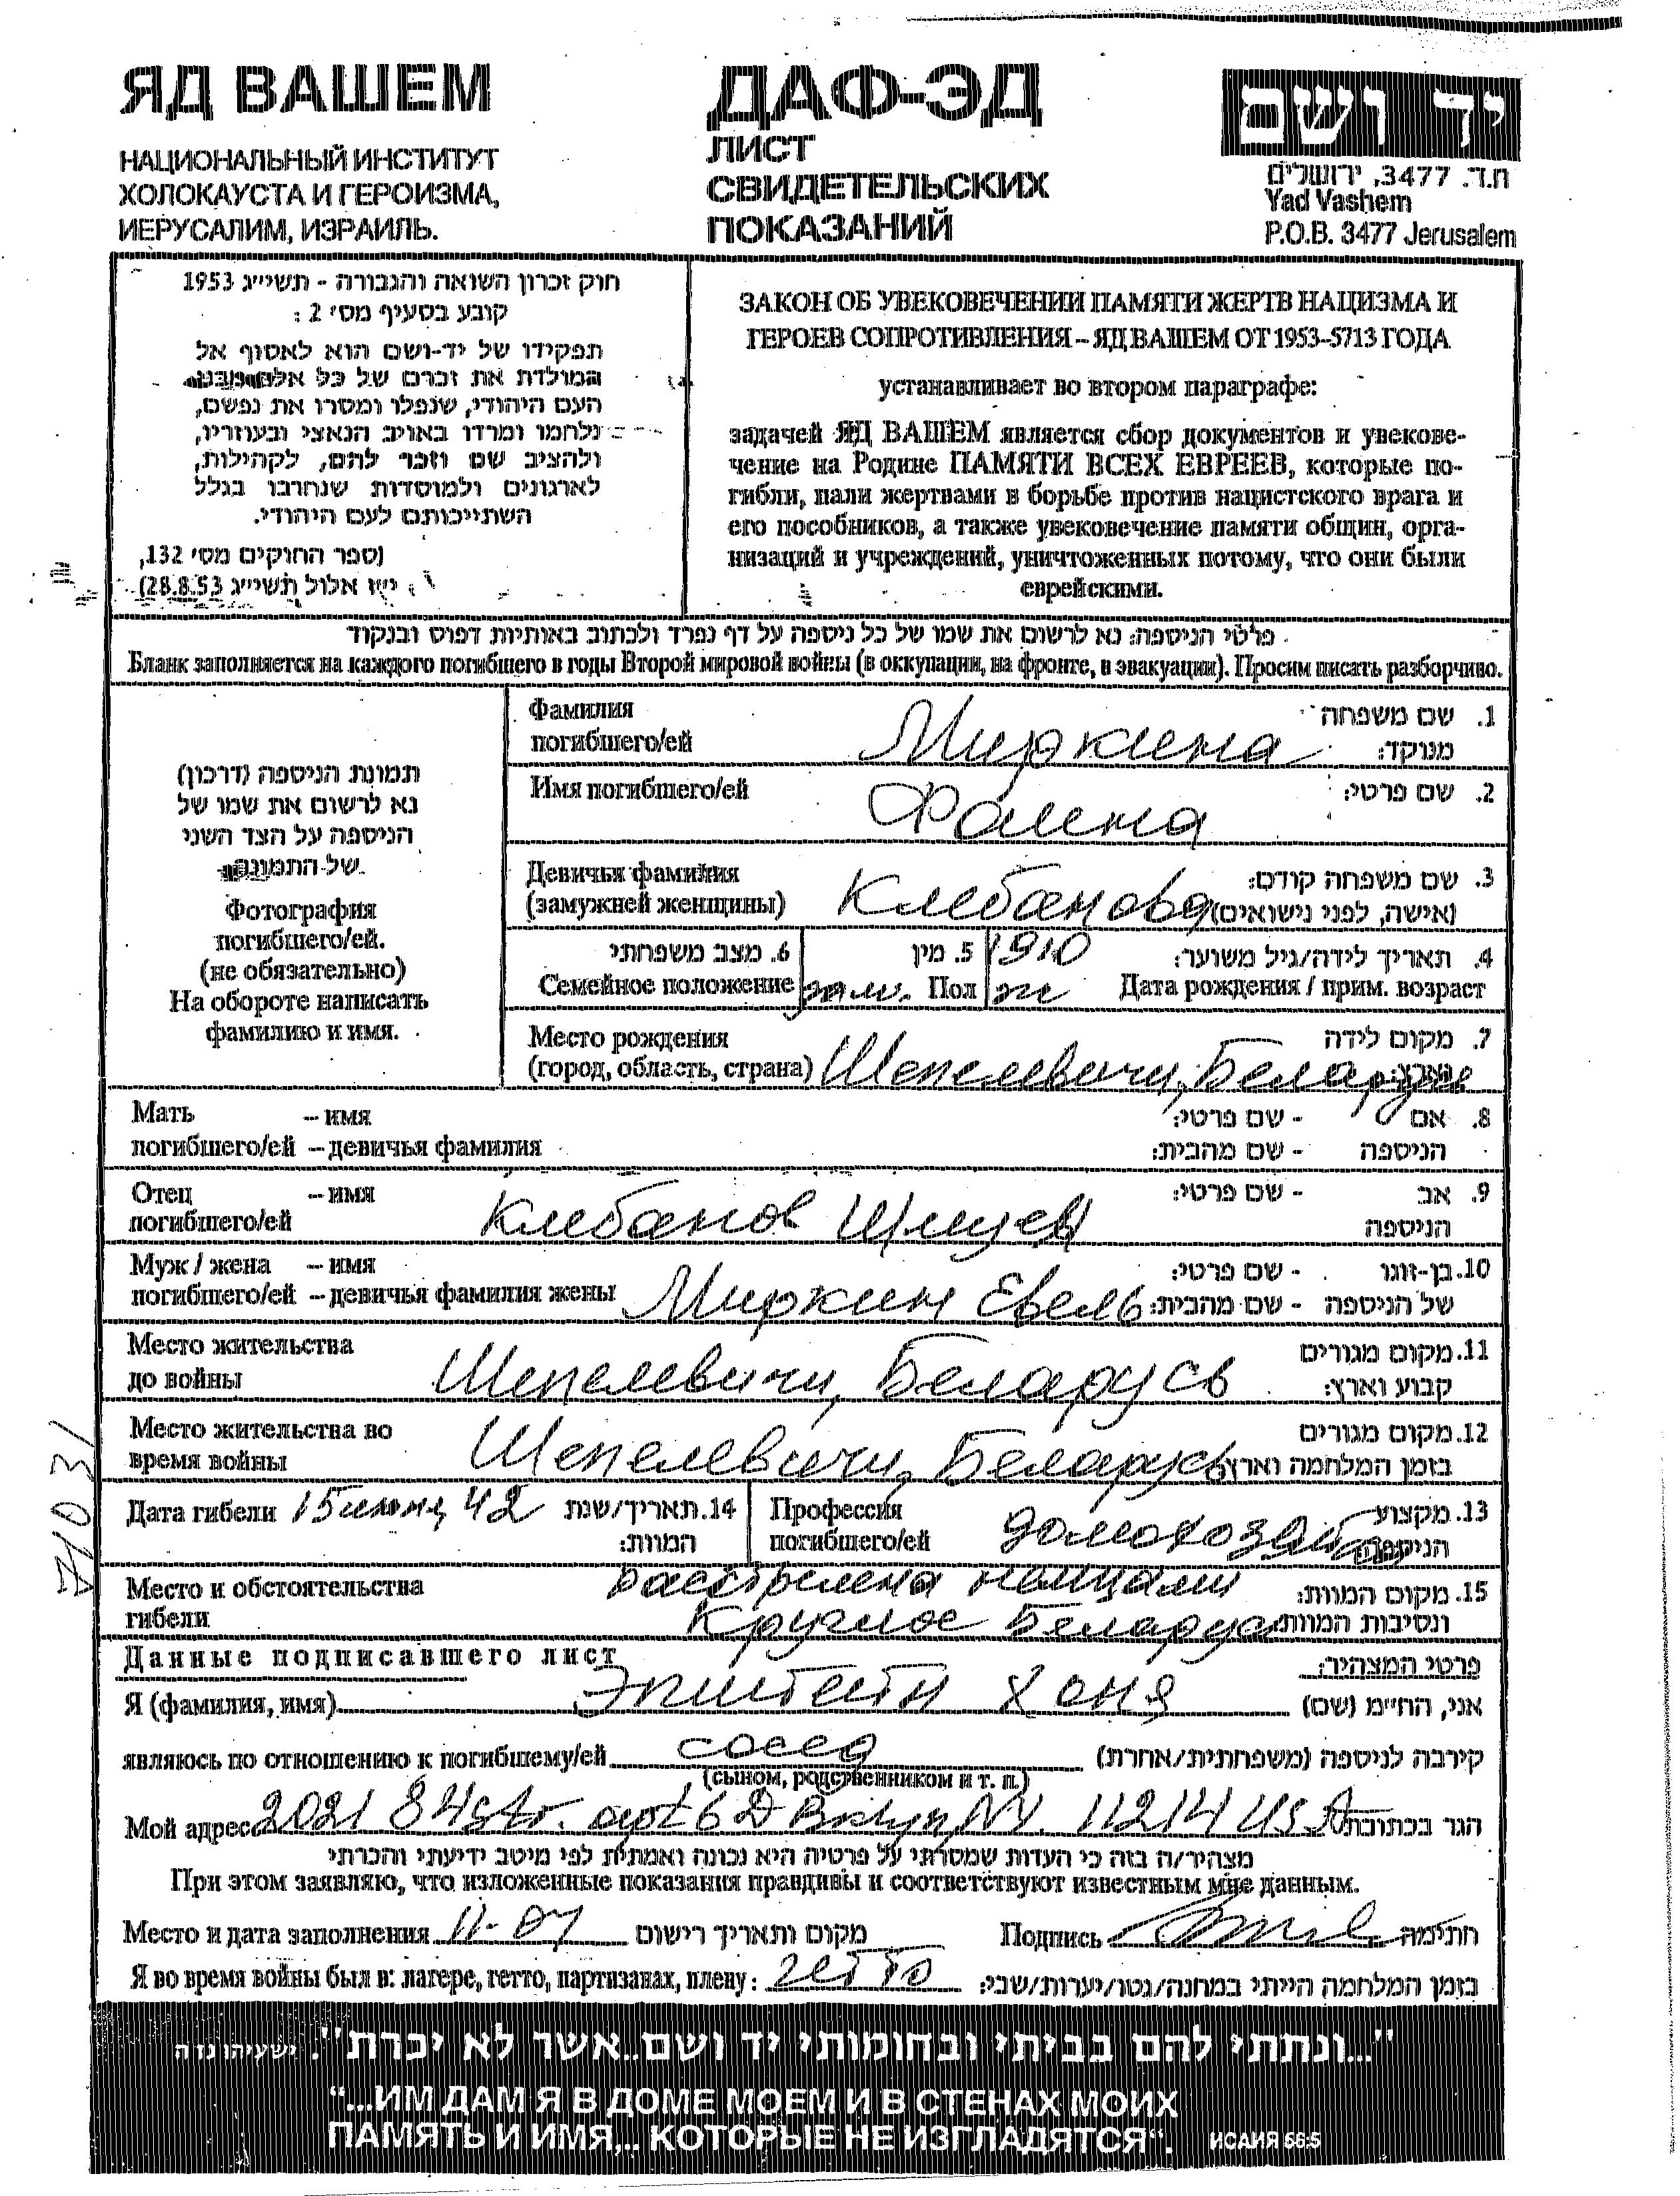 ЯД ВАШЕМ
НАЦИОНАЛЬНЫЙ ИНСТИТУТ
ХОЛОКАУСТА И ГЕРОИЗМА,
ИЕРУСАЛИМ, ИЗРАИЛЬ.
ДАФ-ЭД
ЛИСТ
СВИДЕТЕЛЬСКИХ
ПОКАЗАНИЙ
יד ושם
ת.ד. 3477, ירושלים
Yad Vashem
P.O.B. 3477 Jerusalem
חוק זכרון השואה והגבורה - תשי״ג 1953
קובע בסעיף מס׳ 2 :
תפקידו של יד-ושם הוא לאסוף אל
המולדת את זכרם של כל אלה מבני
העם היהודי, שנפלו ומסרו את נפשם,
נלחמו ומרדו באויב הנאצי ובעוזריו,
ולהציב שם וזכר להם, לקהילות,
לארגונים ולמוסדות שנחרבו בגלל
השתייכותם לעם היהודי.
(ספר החוקים מס׳ 132,
י״ז אלול תשי״ג 28.8.53)
ЗАКОН ОБ УВЕКОВЕЧЕНИИ ПАМЯТИ ЖЕРТВ НАЦИЗМА И
ГЕРОЕВ СОПРОТИВЛЕНИЯ – ЯД ВАШЕМ ОТ 1953–5713 ГОДА
устанавливает во втором параграфе:
задачей ЯД ВАШЕМ является сбор документов и увекове-
чение на Родине ПАМЯТИ ВСЕХ ЕВРЕЕВ, которые по-
гибли, пали жертвами в борьбе против нацистского врага и
его пособников, а также увековечение памяти общин, орга-
низаций и учреждений, уничтоженных потому, что они были
еврейскими.
פרטי הניספה: נא לרשום את שמו של כל ניספה על דף נפרד ולכתוב באותיות דפוס ובנקוד
Бланк заполняется на каждого погибшего в годы Второй мировой войны (в оккупации, на фронте, в эвакуации). Просим писать разборчиво.
תמונת הניספה (דרכון)
נא לרשום את שמו של
הניספה על הצד השני
של התמונה.
Фотография
погибшего/ей.
(не обязательно)
На обороте написать
фамилию и имя.
Фамилия 1. שם משפחה
погибшего/ей Миркина מנוקד:
Имя погибшего/ей Фаина 2. שם פרטי:
Девичья фамилия 3. שם משפחה קודם:
(замужней женщины) Клебанова (אישה, לפני נישואים)
6. מצב משפחתי 5. מין 1910 4. תאריך לידה/גיל משוער:
Семейное положение зам. Пол ж Дата рождения / прим. возраст
Место рождения 7. מקום לידה
(город, область, страна) Шепелевичи, Беларусь
Мать – имя 8. אם - שם פרטי:
погибшего/ей – девичья фамилия הניספה - שם מהבית:
Отец – имя 9. אב - שם פרטי:
погибшего/ей Клебанов הניספה
Муж / жена – имя 10. בן-זוגו - שם פרטי:
погибшего/ей – девичья фамилия жены Миркин Евель של הניספה - שם מהבית:
Место жительства 11. מקום מגורים
до войны Шепелевичи, Беларусь קבוע וארץ:
Место жительства во 12. מקום מגורים
время войны Шепелевичи, Беларусь בזמן המלחמה וארץ
Дата гибели 15 июня, 42 14. תאריך/שנת המוות:
Профессия 13. מקצוע
погибшего/ей домохозяйка הניספה
Место и обстоятельства расстреляна немцами 15. מקום המוות:
гибели Круглое Беларусь ונסיבות המוות
Данные подписавшего лист פרטי המצהיר:
Я (фамилия, имя) Эпштейн Хоня אני, החי״מ (שם)
являюсь по отношению к погибшему/ей сосед קירבה לניספה (משפחתית/אחרת)
(сыном, родственником и т. п.)
Мой адрес 2021 84 str. apt 6 D Brklyn, NY. 11214 USA הגר בכתובת
מצהיר/ה בזה כי העדות שמסרתי על פרטיה היא נכונה ואמתית לפי מיטב ידיעתי והכרתי
При этом заявляю, что изложенные показания правдивы и соответствуют известным мне данным.
Место и дата заполнения 11-07 מקום ותאריך רישום Подпись חתימה
Я во время войны был в: лагере, гетто, партизанах, плену: гетто בזמן המלחמה הייתי במחנה/גטו/יערות/שבי:
71031
"...ונתתי להם בביתי ובחומותי יד ושם..אשר לא יכרת". ישעיהו נו ה
“...ИМ ДАМ Я В ДОМЕ МОЕМ И В СТЕНАХ МОИХ
ПАМЯТЬ И ИМЯ,.. КОТОРЫЕ НЕ ИЗГЛАДЯТСЯ“. ИСАИЯ 56:5